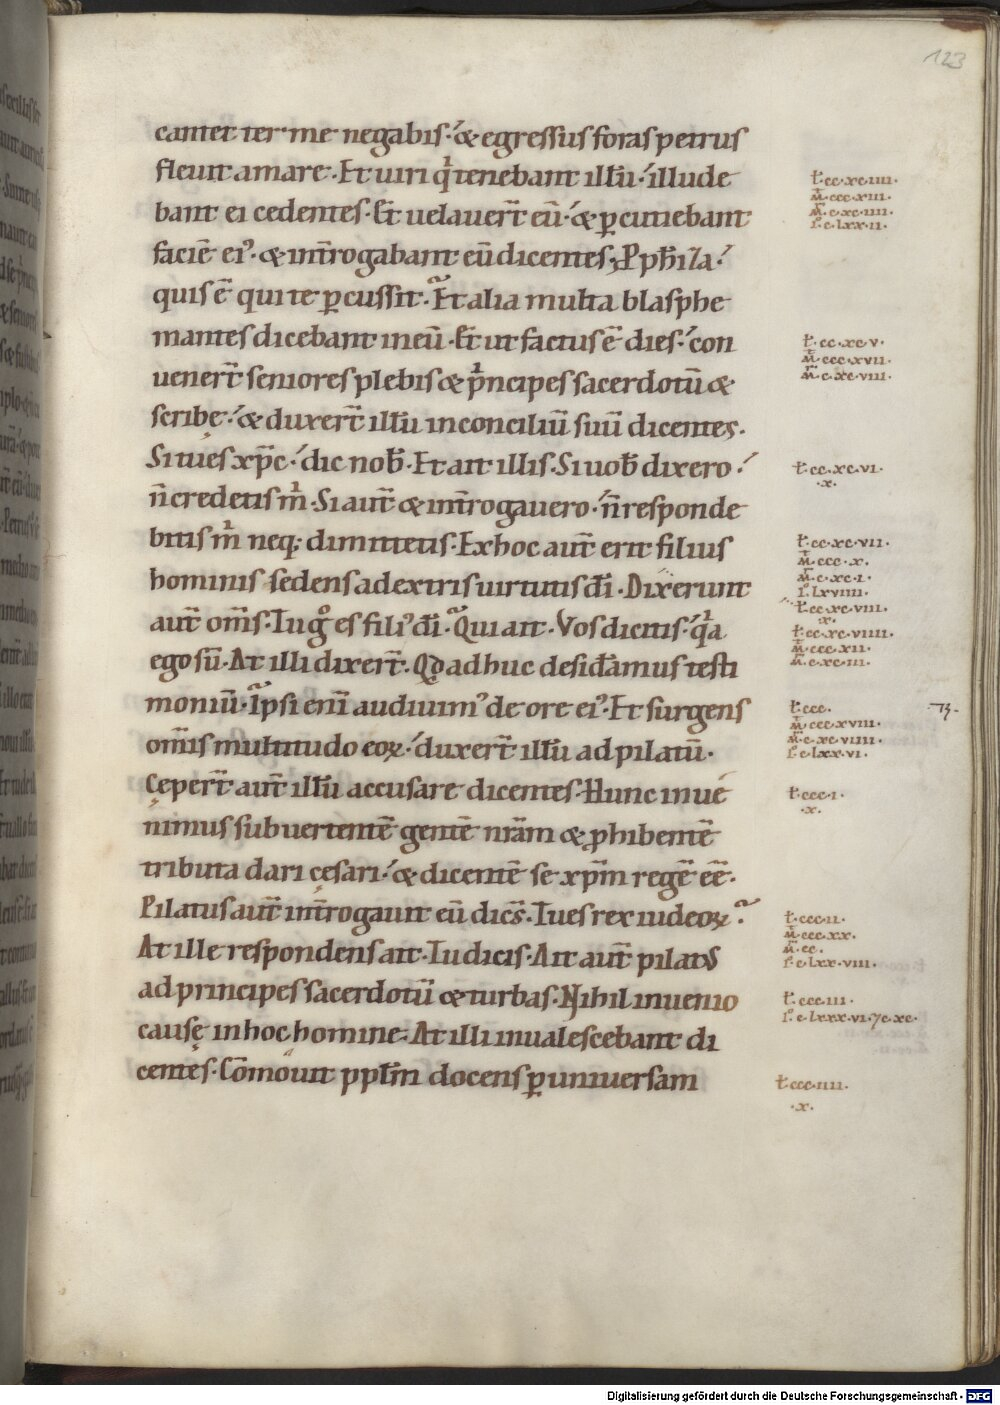 123
cantet ter me negabis·́ & egressus foras petrus
fleuit amare· Et uiri q̍ tenebant illū·́ illude
bant ei cedentes· Et uelauer̄t eū·́ & p̱cutiebant
faciē ei᾽· & int̄rogabant eū dicentes· Pph̄iza·́
quis ē qui te p̱cussit·̃ Et alia multa blasphe
mantes dicebant in eū· Et ut factus ē dies·́ con
uener̄t seniores plebis & p̍ncipes sacerdotū &
scribę·́ & duxer̄t illū in conciliū suū dicentes·
Si tu es xp̄c·́ dic nob̄· Et ait illis· Si uob̄ dixero·́
n̄ credetis m̍· Si aut̄ & int̄rogauero·́ n̄ responde
bitis m̍ neq; dimittetis· Ex hoc aut̄ erit filius
hominis sedens a dextris uirtutis dī· Dixerunt
aut̄ om̄s· Tu gͦ es fili᾽ dī·̃ Qui ait· Vos dicitis·́ q̍a
ego sū· At illi dixer̄t· Qd adhuc desid̄amus testi
moniū·̃ Ipsi eni̅ audiuim᾽ de ore ei᾽· Et surgens
om̄is multitudo eoꝝ·́ duxer̄t illū ad pilatū·
Ceper̄t aut̄ illū accusare dicentes· Hunc inue
nimus subuertentē gentē nr̄am & p̱hibentē
tributa dari cęsari·́ & dicentē se xp̄m regē ēē·
Pilatus aut̄ int̄rogauit eū dic̄s· Tu es rex iudeoꝝ·̃
At ille respondens ait· Tu dicis· Ait aut̄ pilatus
ad principes sacerdotū & turbas· Nihil inuenio
causę in hoc homine· At illi inualescebant di
centes· Cōmouit pplm̄ docens p̱ uniuersam
ł·cc·xc·iiii·
m̄·ccc·xiii·
m̄·c·xc·iiii·
ı̊·c·lxx·ii·
ł·cc·xc·v·
m̄·ccc·xvii·
m̄·c·xc·viii·
ł·cc·xc·vi·
·x·
ł·cc·xc·vii·
m̄·ccc·x·
m̄·c·xc·i·
ı̊·lxviiii·
ł·cc·xc·viii·
x·
ł·cc·xc·viiii·
m̄·ccc·xii·
m̄·c·xc·iii·
ł·ccc·
m̄·ccc·xviii·
m̄·c·xc·viiii·
ı̊·c·lxx·vi·
ł·ccc·i·
·x·
ł·ccc·ii·
m̄·ccc·xx·
m̄·cc·
ı̊·c·lxx·viii·
ł·ccc·iii·
ı̊·c·lxxx·vi·⁊c·xc·
ł·ccc·iiii·
·x·
Digitalisierung gefördert durch die Deutsche Forschungsgemeinschaft - DFG